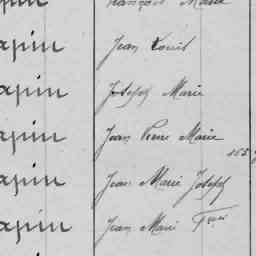 François Marie
apin Jean Louis
apin Joseph Marie
apin Jean Pierre Marie
apin Jean Marie Joseph
apin Jean Marie